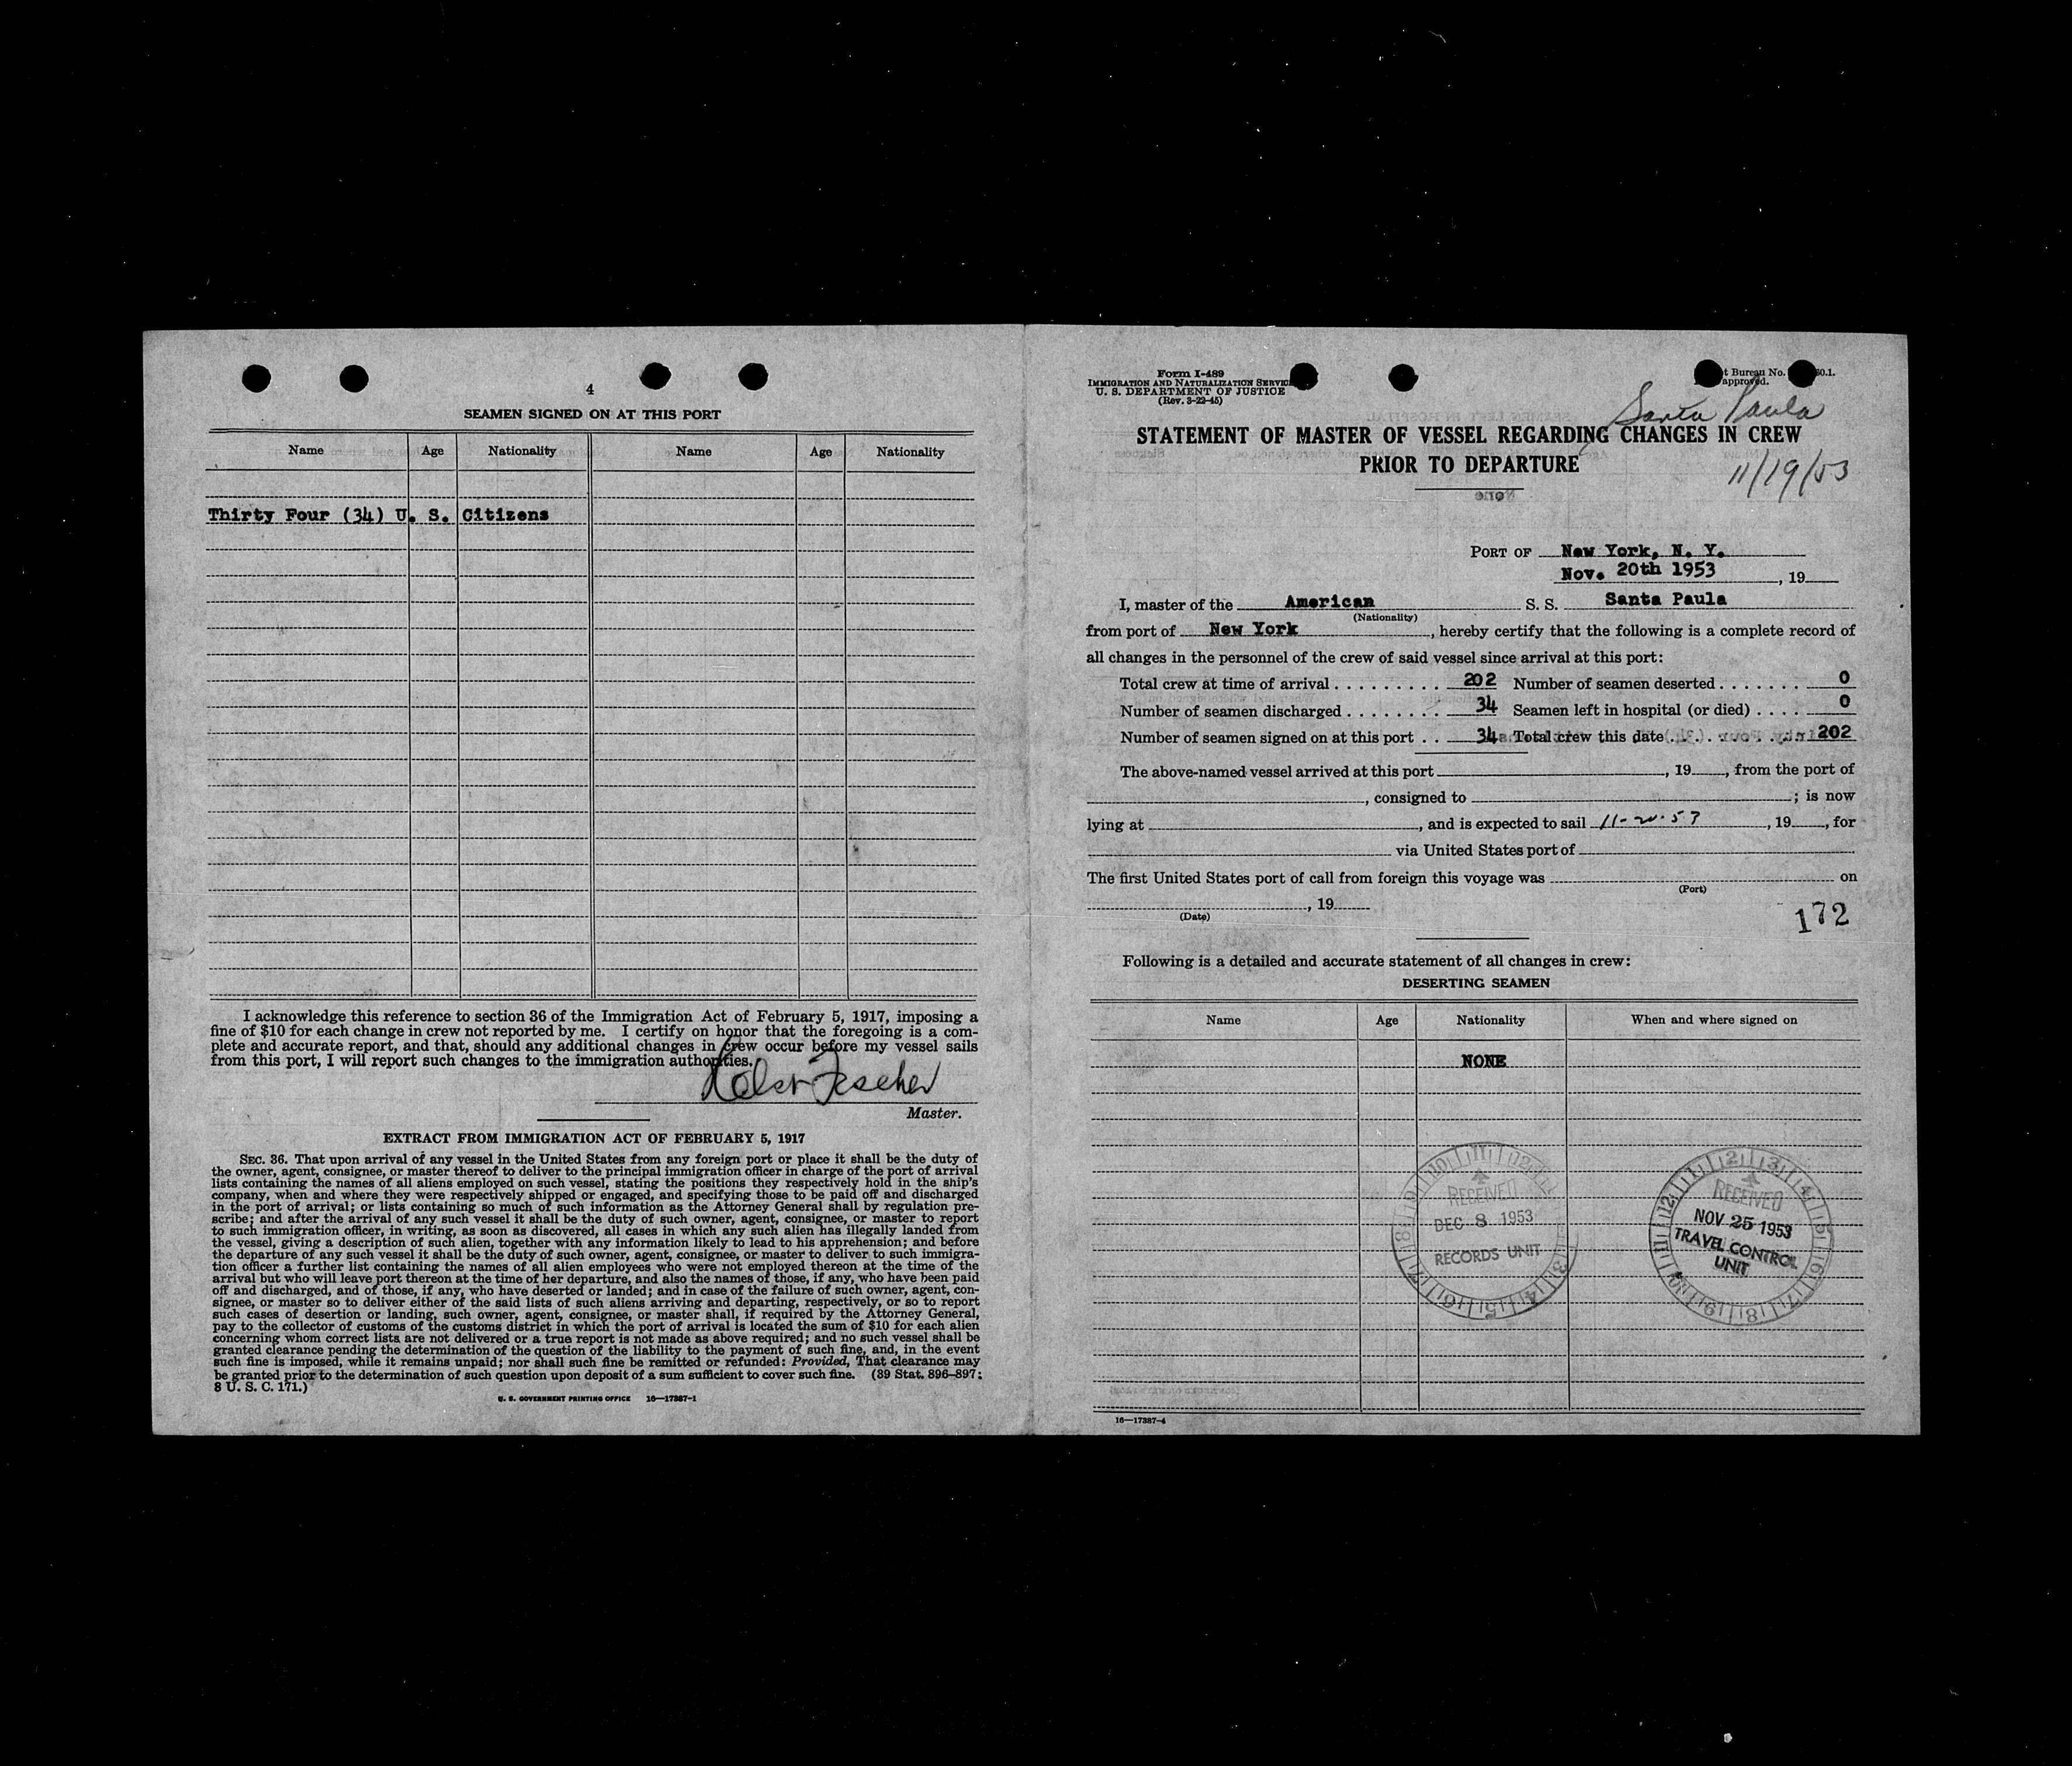 4
SEAMEN SIGNED ON AT THIS PORT
Name Age Nationality Name Age Nationality
Thirty Four (34) U. S. Citizens
I acknowledge this reference to section 36 of the Immigration Act of February 5, 1917, imposing a
fine of $10 for each change in crew not reported by me. I certify on honor that the foregoing is a com-
plete and accurate report, and that, should any additional changes in crew occur before my vessel sails
from this port, I will report such changes to the immigration authorities.
Master.
EXTRACT FROM IMMIGRATION ACT OF FEBRUARY 5, 1917
SEC. 36. That upon arrival of any vessel in the United States from any foreign port or place it shall be the duty of
the owner, agent, consignee, or master thereof to deliver to the principal immigration officer in charge of the port of arrival
lists containing the names of all aliens employed on such vessel, stating the positions they respectively hold in the ship's
company, when and where they were respectively shipped or engaged, and specifying those to be paid off and discharged
in the port of arrival; or lists containing so much of such information as the Attorney General shall by regulation pre-
scribe; and after the arrival of any such vessel it shall be the duty of such owner, agent, consignee, or master to report
to such immigration officer, in writing, as soon as discovered, all cases in which any such alien has illegally landed from
the vessel, giving a description of such alien, together with any information likely to lead to his apprehension; and before
the departure of any such vessel it shall be the duty of such owner, agent, consignee, or master to deliver to such immigra-
tion officer a further list containing the names of all alien employees who were not employed thereon at the time of the
arrival but who will leave port thereon at the time of her departure, and also the names of those, if any, who have been paid
off and discharged, and of those, if any, who have deserted or landed; and in case of the failure of such owner, agent, con-
signee, or master so to deliver either of the said lists of such aliens arriving and departing, respectively, or so to report
such cases of desertion or landing, such owner, agent, consignee, or master shall, if required by the Attorney General,
pay to the collector of customs of the customs district in which the port of arrival is located the sum of $10 for each alien
concerning whom correct lists are not delivered or a true report is not made as above required; and no such vessel shall be
granted clearance pending the determination of the question of the liability to the payment of such fine, and, in the event
such fine is imposed, while it remains unpaid; nor shall such fine be remitted or refunded: Provided, That clearance may
be granted prior to the determination of such question upon deposit of a sum sufficient to cover such fine. (39 Stat. 896–897;
8 U. S. C. 171.)
U. S. GOVERNMENT PRINTING OFFICE 16—17387-1
Form I-489
IMMIGRATION AND NATURALIZATION SERVICE
U. S. DEPARTMENT OF JUSTICE
(Rev. 3-22-45)
t Bureau No. 60.1.
approved.
Santa Paula
STATEMENT OF MASTER OF VESSEL REGARDING CHANGES IN CREW
PRIOR TO DEPARTURE
11/19/53
PORT OF New York, N. Y.
Nov. 20th 1953, 19
I, master of the American S. S. Santa Paula
(Nationality)
from port of New York, hereby certify that the following is a complete record of
all changes in the personnel of the crew of said vessel since arrival at this port:
Total crew at time of arrival 202 Number of seamen deserted 0
Number of seamen discharged 34 Seamen left in hospital (or died) 0
Number of seamen signed on at this port 34 Total crew this date 202
The above-named vessel arrived at this port , 19 , from the port of
, consigned to ; is now
lying at , and is expected to sail 11-20-53, 19 , for
via United States port of
The first United States port of call from foreign this voyage was on
(Port)
, 19
(Date)
172
Following is a detailed and accurate statement of all changes in crew:
DESERTING SEAMEN
Name Age Nationality When and where signed on
NONE
RECEIVED
DEC 8 1953
RECORDS UNIT
RECEIVED
NOV 25 1953
TRAVEL CONTROL
UNIT
16—17387-4